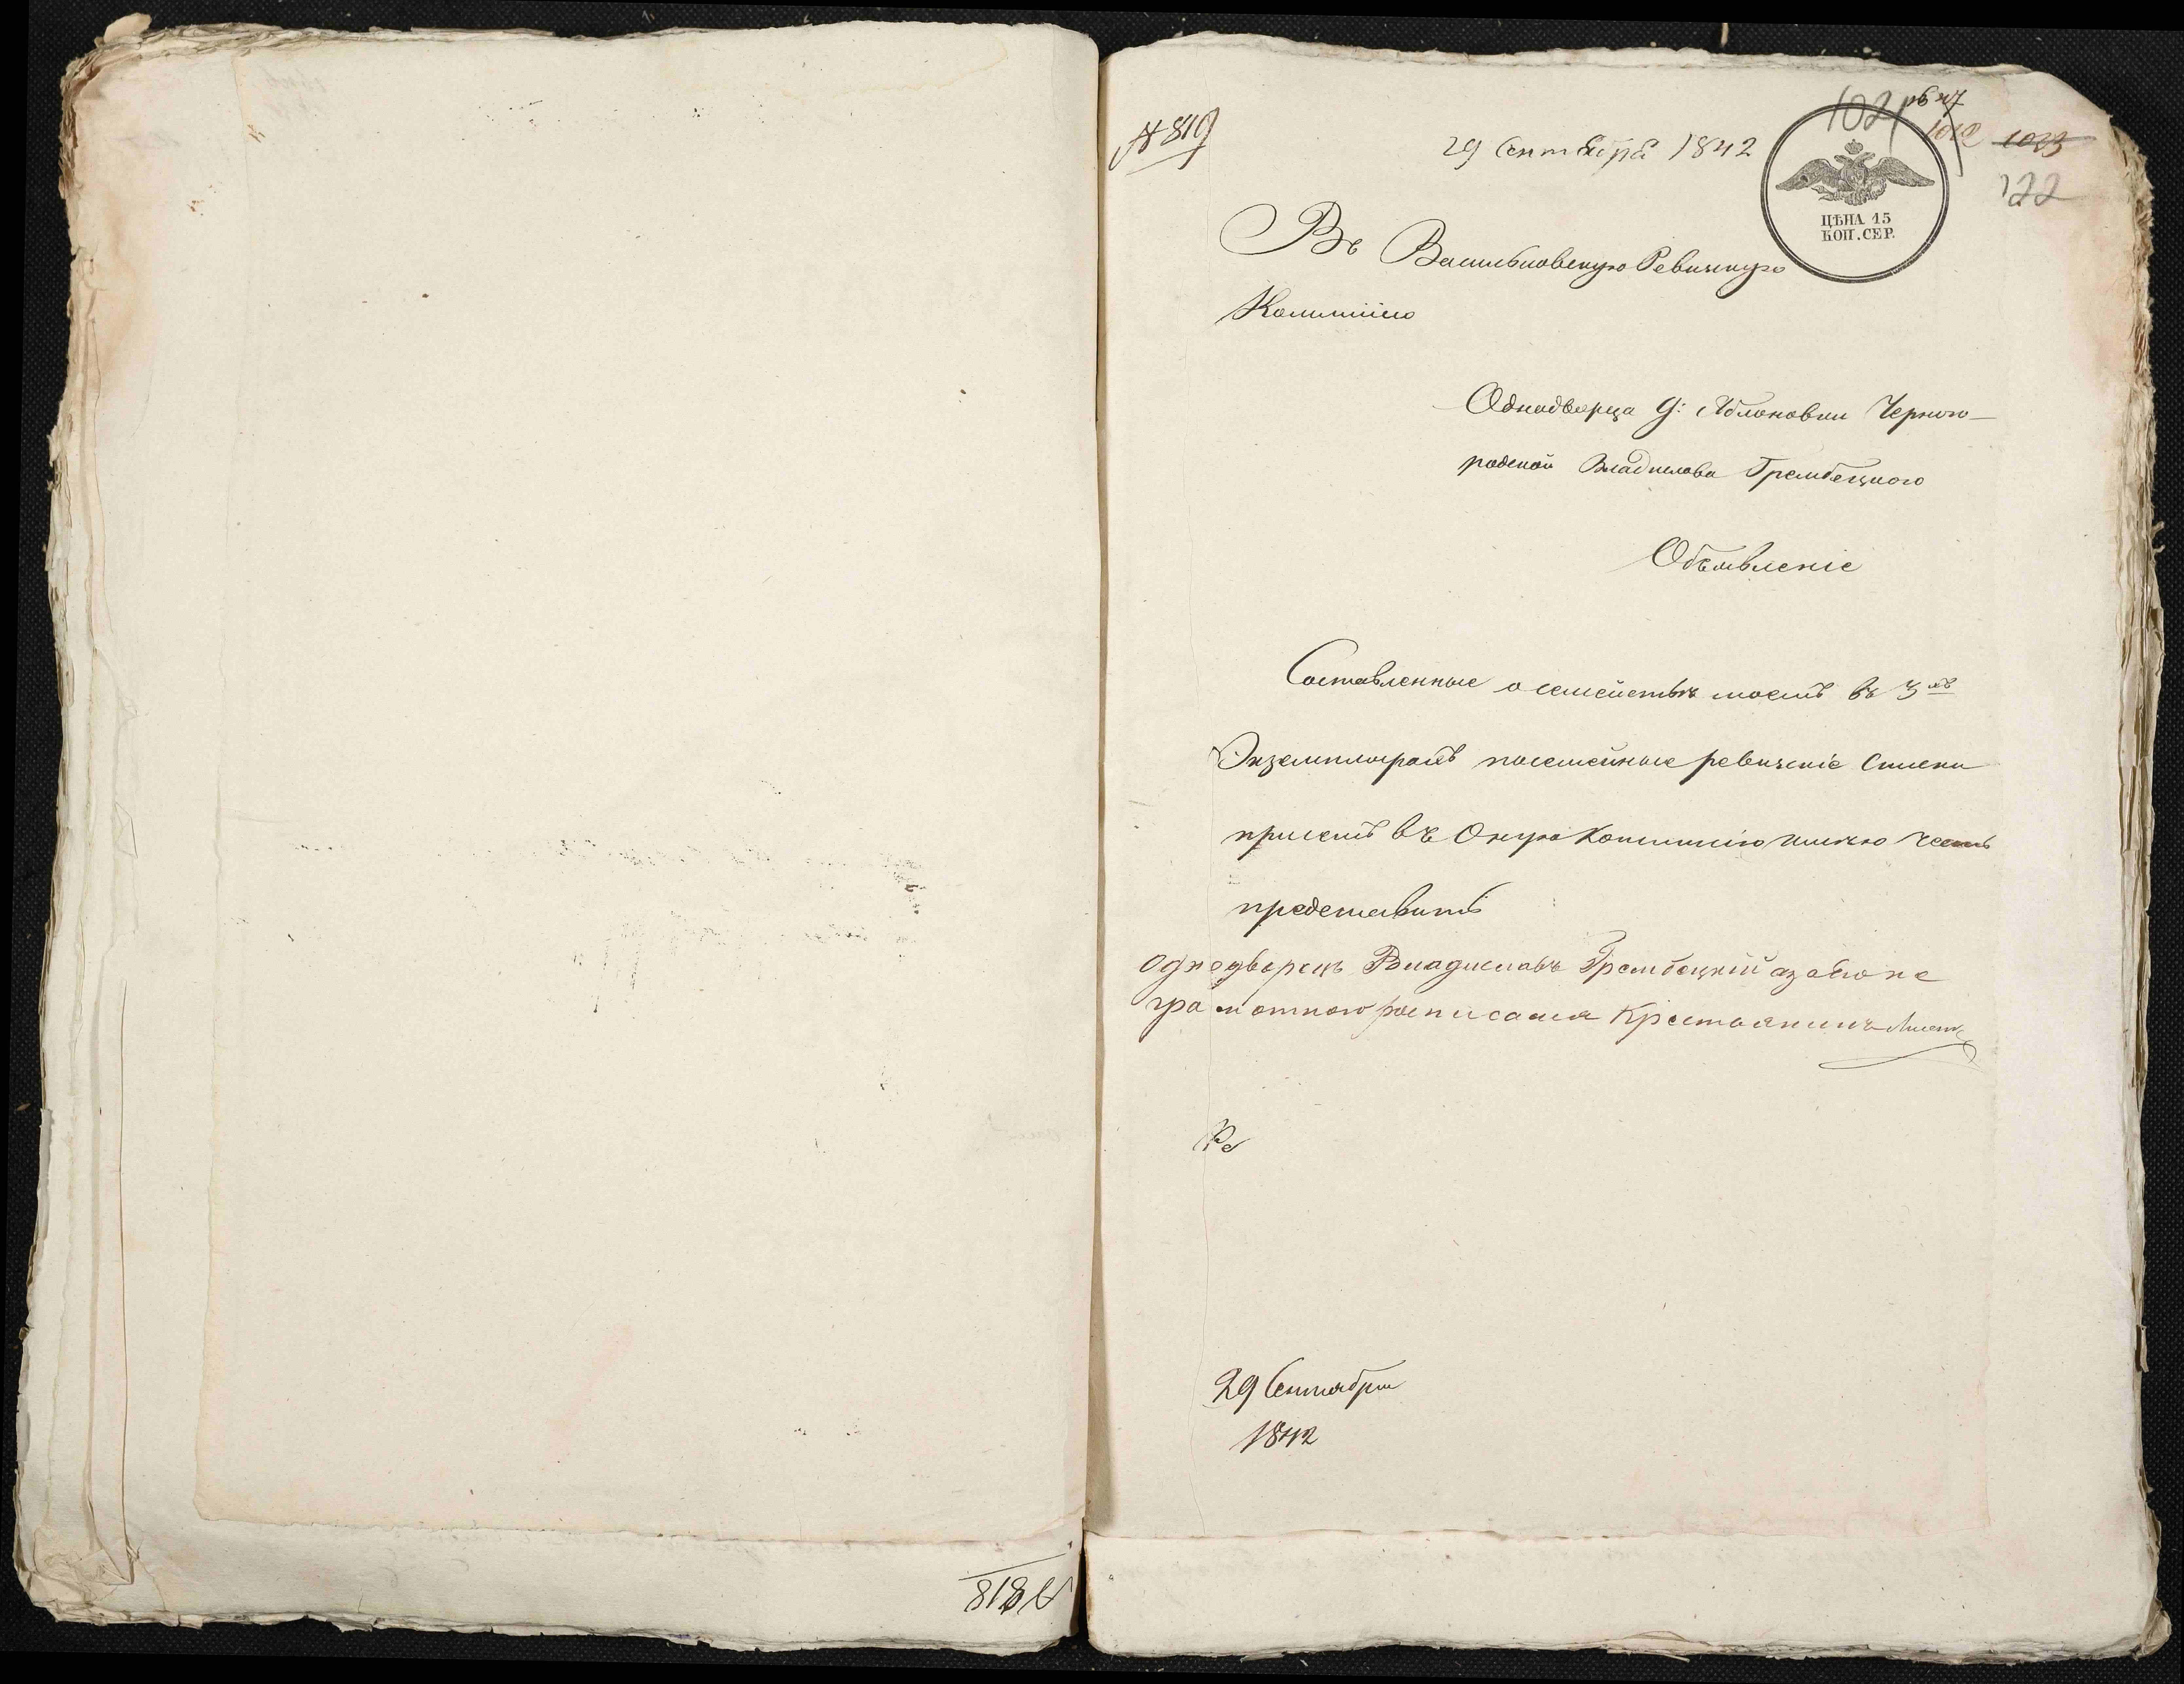 № 819
29 Сентября 1842
1021
1012 1023
122
ЦѢНА 15
КОП. СЕР.
Въ Васильковскую Ревизкую
Коммисію
Однодворца д: Яблоновки Черного-
родской Владислава Грембецкого
Объявленіе
Составленные о семействѣ моемъ въ 3хъ
Экземплярахъ посемейные ревизскіе Списки
при семъ въ Оную Коммисію имѣю честь
представить
однодворецъ Владиславъ Грембецкій а за его не
грамотного росписался Крестьянинъ
29 Сентября
1842
№ 818